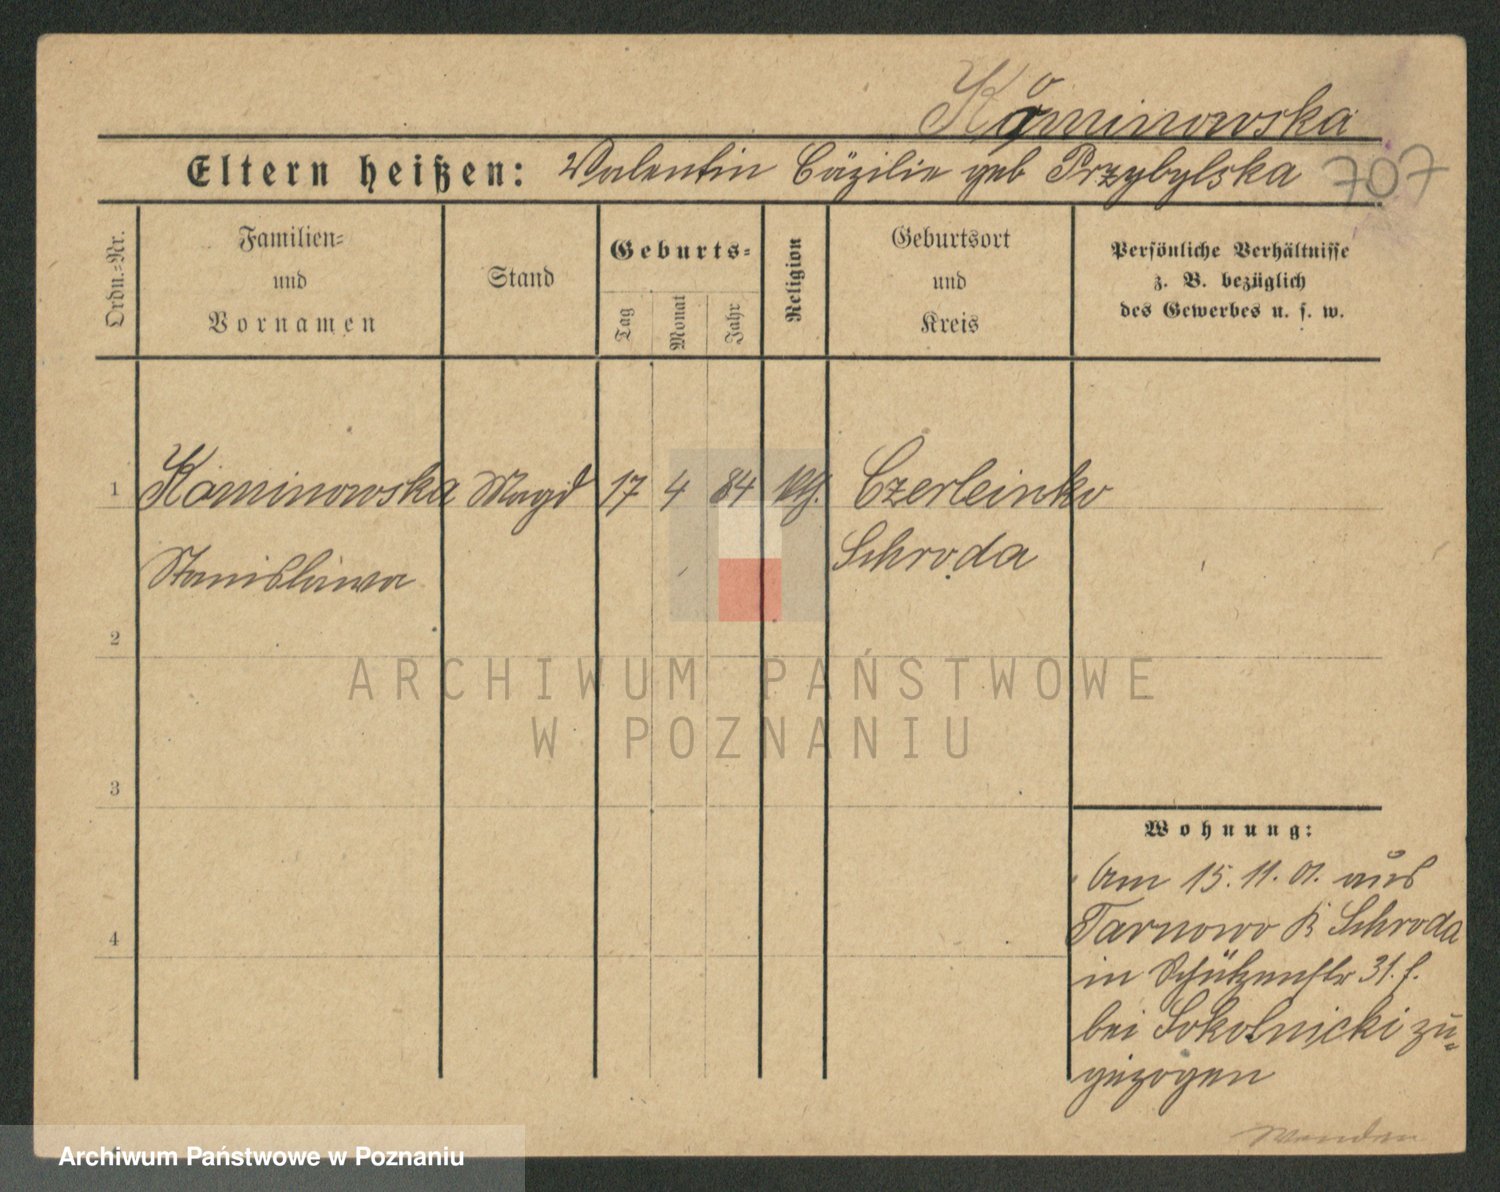 Kominowska
Eltern heißen: Valentin Cäzilie geb Przybylska 707
Ordn.=Nr.
Familien=
und
Vornamen
Stand
Geburts=
Tag
Monat
Jahr
Religion
Geburtsort
und
Kreis
Persönliche Verhältnisse
z. B. bezüglich
des Gewerbes u. s. w.
1 Kominowska Magd 17 4 84 Czerleinko
Stanislawa Schroda
2
ARCHIWUM PAŃSTWOWE
W POZNANIU
3
Wohnung:
Am 15.11.01. aus
4 Tarnowo K Schroda
in Schützenstr 31. f.
bei Sokolnicki zu=
gezogen
Wenden
Archiwum Państwowe w Poznaniu